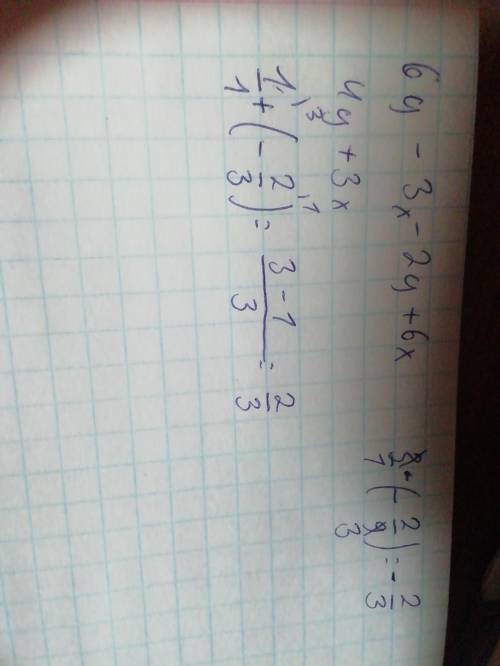 6y - 3x - 2y + 6x
4y + 3x
1/1 + (- 2/3) = (3 - 1)/3 = 2/3
(- 2/3) = - 2/3